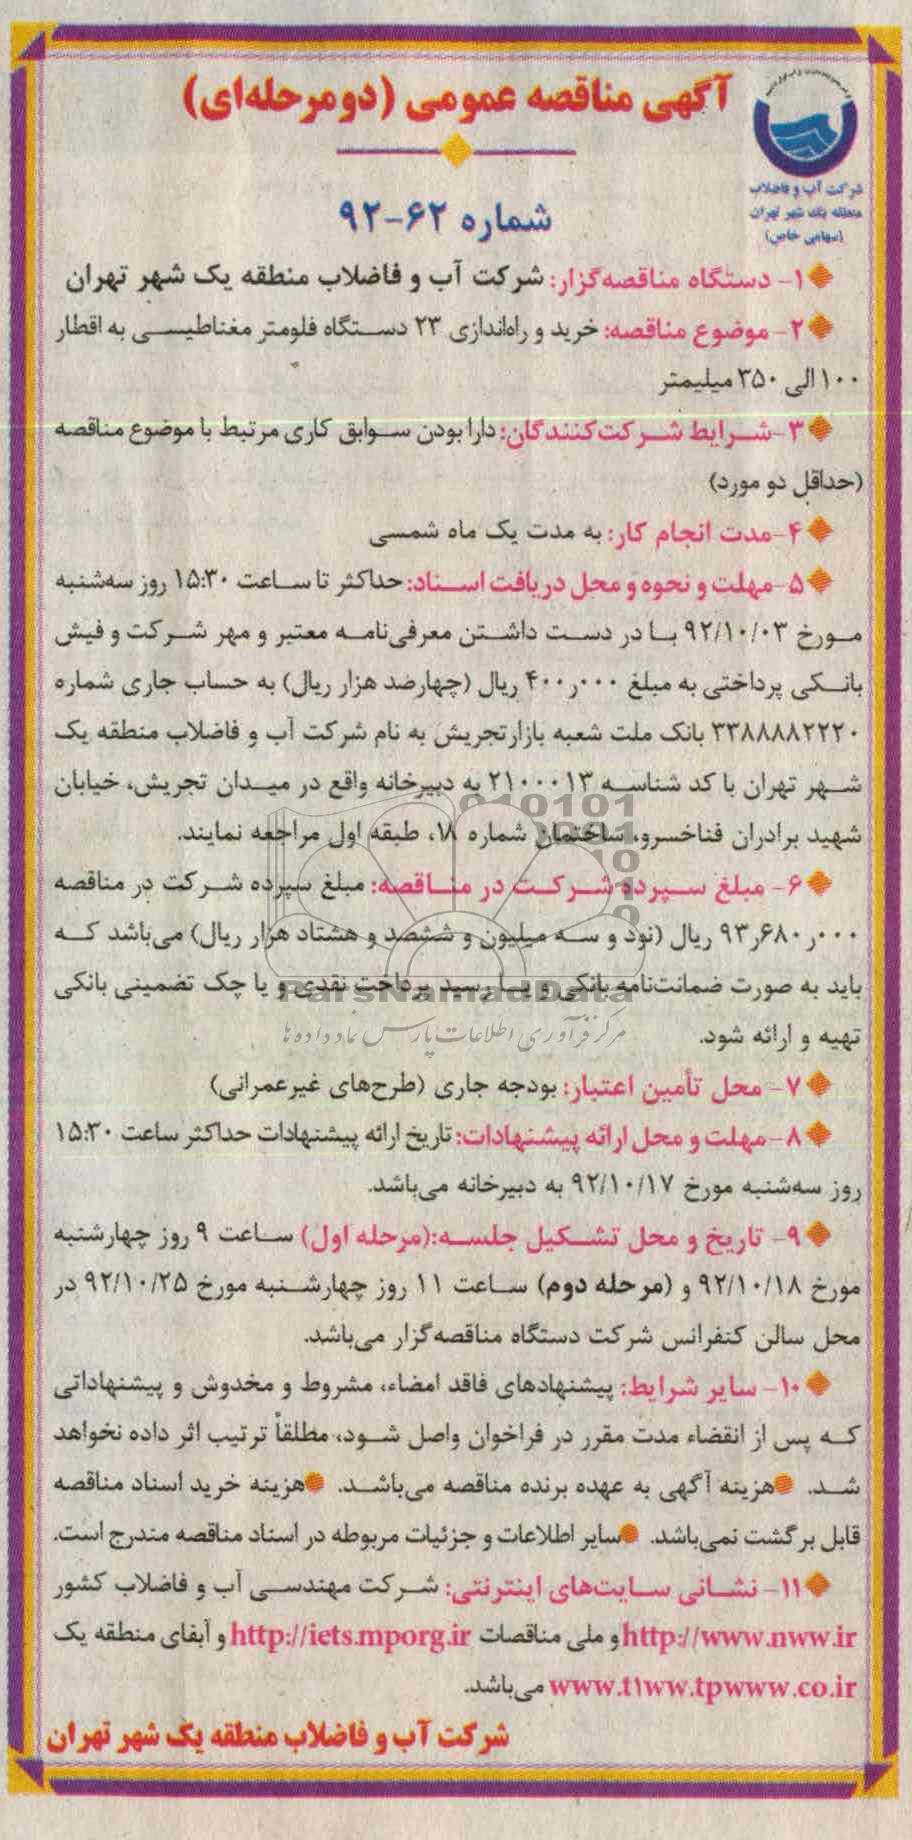 آگهی مناقصه عمومی (دو مرحله‌ای)
شرکت آب و فاضلاب
منطقه یک شهر تهران
(سهامی خاص)
شماره ۶۲-۹۲
۱- دستگاه مناقصه‌گزار: شرکت آب و فاضلاب منطقه یک شهر تهران
۲- موضوع مناقصه: خرید و راه‌اندازی ۲۳ دستگاه فلومتر مغناطیسی به اقطار
۱۰۰ الی ۳۵۰ میلیمتر
۳-شرایط شرکت‌کنندگان: دارا بودن سوابق کاری مرتبط با موضوع مناقصه
(حداقل دو مورد)
۴-مدت انجام کار: به مدت یک ماه شمسی
۵-مهلت و نحوه و محل دریافت اسناد: حداکثر تا ساعت ۱۵:۳۰ روز سه‌شنبه
مورخ ۹۲/۱۰/۰۳ با در دست داشتن معرفی‌نامه معتبر و مهر شرکت و فیش
بانکی پرداختی به مبلغ ۴۰۰ر۰۰۰ ریال (چهارصد هزار ریال) به حساب جاری شماره
۳۳۸۸۸۸۲۲۲۰ بانک ملت شعبه بازار تجریش به نام شرکت آب و فاضلاب منطقه یک
شهر تهران با کد شناسه ۲۱۰۰۰۱۳ به دبیرخانه واقع در میدان تجریش، خیابان
شهید برادران فناخسرو، ساختمان شماره ۱۸، طبقه اول مراجعه نمایند.
۶- مبلغ سپرده شرکت در مناقصه: مبلغ سپرده شرکت در مناقصه
۹۳ر۶۸۰ر۰۰۰ ریال (نود و سه میلیون و ششصد و هشتاد هزار ریال) می‌باشد که
باید به صورت ضمانت‌نامه بانکی و یا رسید پرداخت نقدی و یا چک تضمینی بانکی
ParsNamadData
تهیه و ارائه شود.
مرکز فرآوری اطلاعات پارس نماد داده ها
۷- محل تأمین اعتبار: بودجه جاری (طرح‌های غیرعمرانی)
۸-مهلت و محل ارائه پیشنهادات: تاریخ ارائه پیشنهادات حداکثر ساعت ۱۵:۳۰
روز سه‌شنبه مورخ ۹۲/۱۰/۱۷ به دبیرخانه می‌باشد.
۹- تاریخ و محل تشکیل جلسه:(مرحله اول) ساعت ۹ روز چهارشنبه
مورخ ۹۲/۱۰/۱۸ و (مرحله دوم) ساعت ۱۱ روز چهارشنبه مورخ ۹۲/۱۰/۲۵ در
محل سالن کنفرانس شرکت دستگاه مناقصه‌گزار می‌باشد.
۱۰- سایر شرایط: پیشنهادهای فاقد امضاء، مشروط و مخدوش و پیشنهاداتی
که پس از انقضاء مدت مقرر در فراخوان واصل شود، مطلقاً ترتیب اثر داده نخواهد
شد. هزینه آگهی به عهده برنده مناقصه می‌باشد. هزینه خرید اسناد مناقصه
قابل برگشت نمی‌باشد. سایر اطلاعات و جزئیات مربوطه در اسناد مناقصه مندرج است.
۱۱- نشانی سایت‌های اینترنتی: شرکت مهندسی آب و فاضلاب کشور
http://www.nww.ir و ملی مناقصات http://iets.mporg.ir و آبفای منطقه یک
www.t1ww.tpwww.co.ir می‌باشد.
شرکت آب و فاضلاب منطقه یک شهر تهران